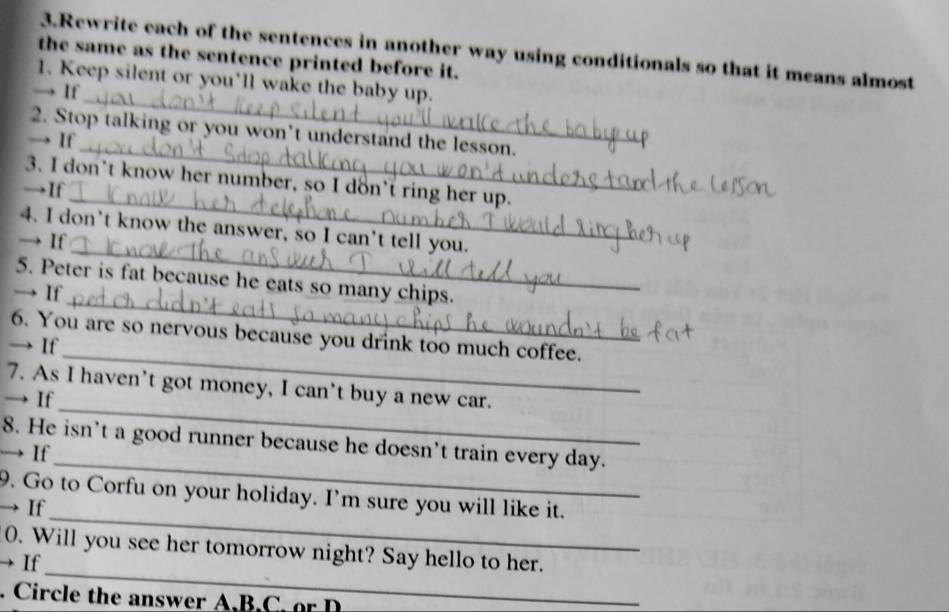 3.Rewrite each of the sentences in another way using conditionals so that it means almost
the same as the sentence printed before it.
1. Keep silent or you'll wake the baby up.
→ If you don't keep silent you'll walke the baby up
2. Stop talking or you won't understand the lesson.
→ If you don't Sdop talking you won't understand the lesson
3. I don't know her number, so I don't ring her up.
→If I know her telephone number I would ring her up
4. I don't know the answer, so I can't tell you.
→ If I know the answer I will tell you
5. Peter is fat because he eats so many chips.
→ If peter didn't eats so many chips he woundn't be fat
6. You are so nervous because you drink too much coffee.
→ If
7. As I haven't got money, I can't buy a new car.
→ If
8. He isn't a good runner because he doesn't train every day.
→ If
9. Go to Corfu on your holiday. I'm sure you will like it.
→ If
10. Will you see her tomorrow night? Say hello to her.
→ If
. Circle the answer A,B,C, or D